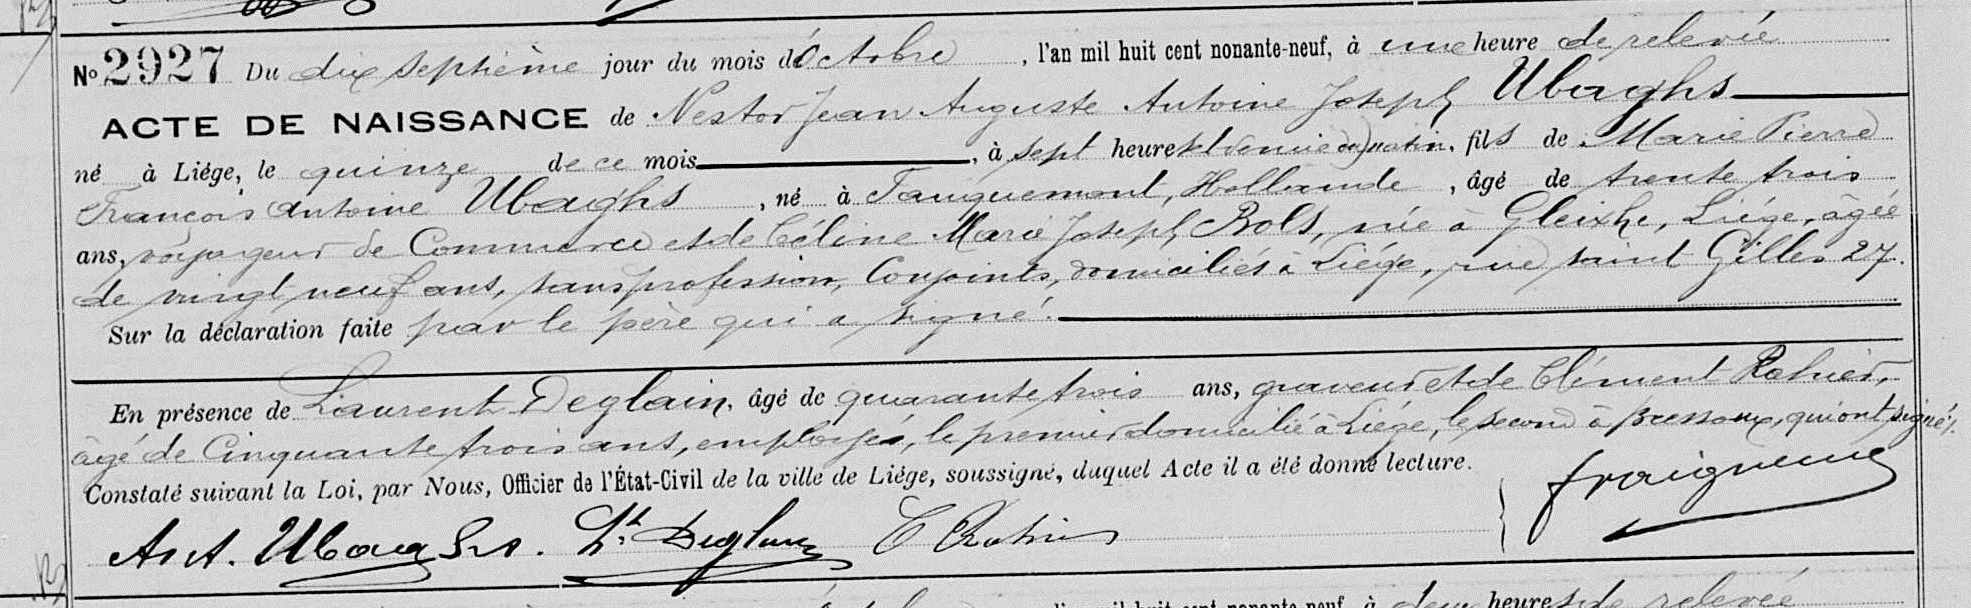 No 2927 Du dix septième jour du mois d'Octobre, l'an mil huit cent nonante-neuf, à une heure de relevée
ACTE DE NAISSANCE de Nestor Jean Auguste Antoine Joseph Ubaghs
né à Liége, le quinze de ce mois, à sept heures et demie du matin, fils de Marie Pierre
François Antoine Ubaghs, né à Fauquemont, Hollande, âgé de trente trois
ans, voyageur de Commerce et de Céline Marie Joseph Bols, née à Gleixhe, Liége, âgée
de vingt neuf ans, sans profession, Conjoints, domiciliés à Liége, rue saint Gilles 27.
Sur la déclaration faite par le père qui a signé.
En présence de Laurent Deglain, âgé de quarante trois ans, graveur et de Clément Rahier,
âgé de Cinquante trois ans, employés, le premier domicilié à Liége, le second à Bressoux, qui ont signé.
Constaté suivant la Loi, par Nous, Officier de l'État-Civil de la ville de Liége, soussigné, duquel Acte il a été donné lecture.
Fraigneux
Ant. Ubaghs. Lt Deglain C Rahier
l'an mil huit cent nonante-neuf, à deux heures de relevée